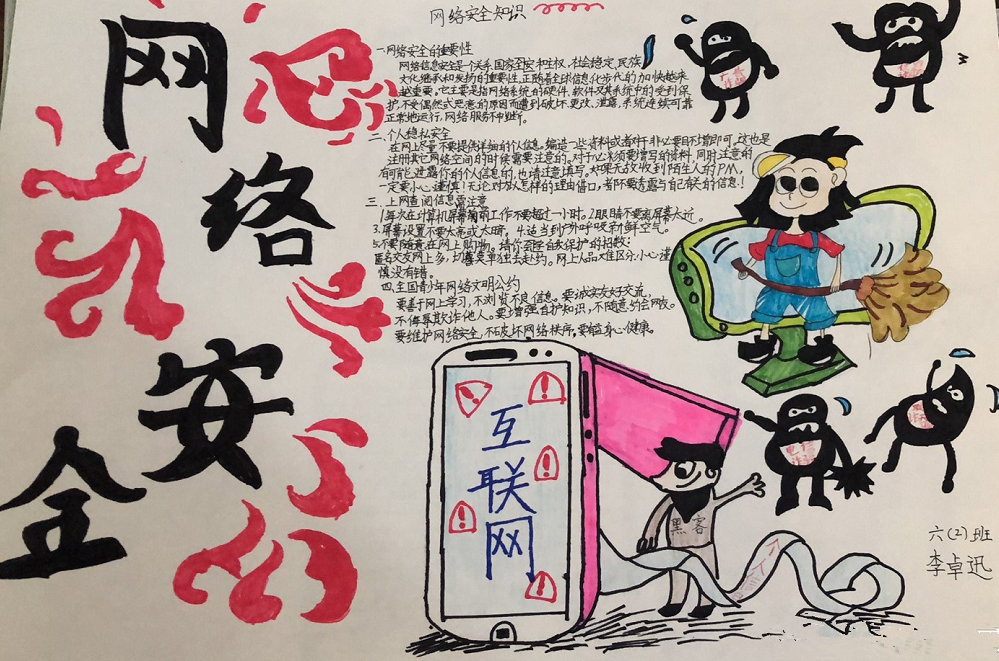 网络安全知识
网络安全
一.网络安全的重要性
网络信息安全是一个关乎国家安全和主权,社会稳定,民族
文化继承和发扬的重要性,正随着全球信息化步伐的加快越来
越重要,它主要是指网络系统的硬件,软件及其系统中的受到保
护,不受偶然或恶意的原因而遭到破坏.更改.泄露,系统连续可靠
正常地运行,网络服务不中断。
二.个人隐私安全
在网上尽量不要提供详细的个人信息。编造一些资料或者对于非必要的不增即可,这也是
注册其它网络空间的时候需要注意的。对于必须要填写的资料,同时注意的
有可能泄露你的个人信息的,也请注意填写。如果无故收到陌生人的
一定要小心,谨慎!无论对方怎样的理由借口,者不要透露与自己有关的信息!
三.上网查阅信息需注意
1.每次在计算机屏幕前的工作不要超过一小时。2.眼睛不要离屏幕太近。
3.屏幕设置不要太亮或太暗。4.适当到户外呼吸新鲜空气。
5.不要随意在网上购物。
匿名交友网上多,切莫单独去赴约。网上人品难区分,小心谨
慎没有错。
四.全国青少年网络文明公约
要善于网上学习,不浏览不良信息。要诚实友好交流,
不侮辱欺诈他人。要增强自护知识,不随意约会网友。
要维护网络安全,不破坏网络秩序,要有益身心健康。
互联网
黑客
个人信息
六(2)班
李卓迅